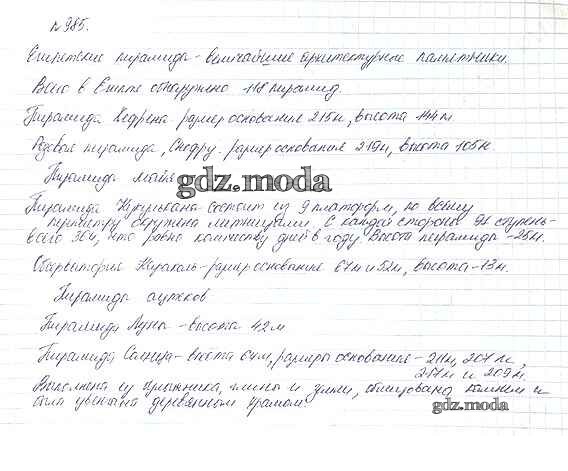 №985.
Египетские пирамиды - величайшие архитектурные памятники.
Всего в Египте обнаружено - 118 пирамид.
Пирамида Хефрена - размер основания 215м, высота 144м
Розовая пирамида, Снофру. размер основания 219м, высота 105м.
Пирамида майя
gdz.moda
Пирамида Кукулькана состоит из 9 платформ, по всему
периметру окружена лестницами. С каждой стороны 91 ступень-
всего 364, что равно количеству дней в году Высота пирамиды -25м.
Обсерватория Караколь-размер основание 67м и 52м, высота-13м.
Пирамида ацтеков
Пирамида Луны - высота 42м
Пирамида Солнца - высота 64м, размеры основания - 211м, 207м,
217м и 209м.
Выполнена из булыжника, глины и земли, облицована камнем и
была увенчана деревянным храмом.
gdz.moda